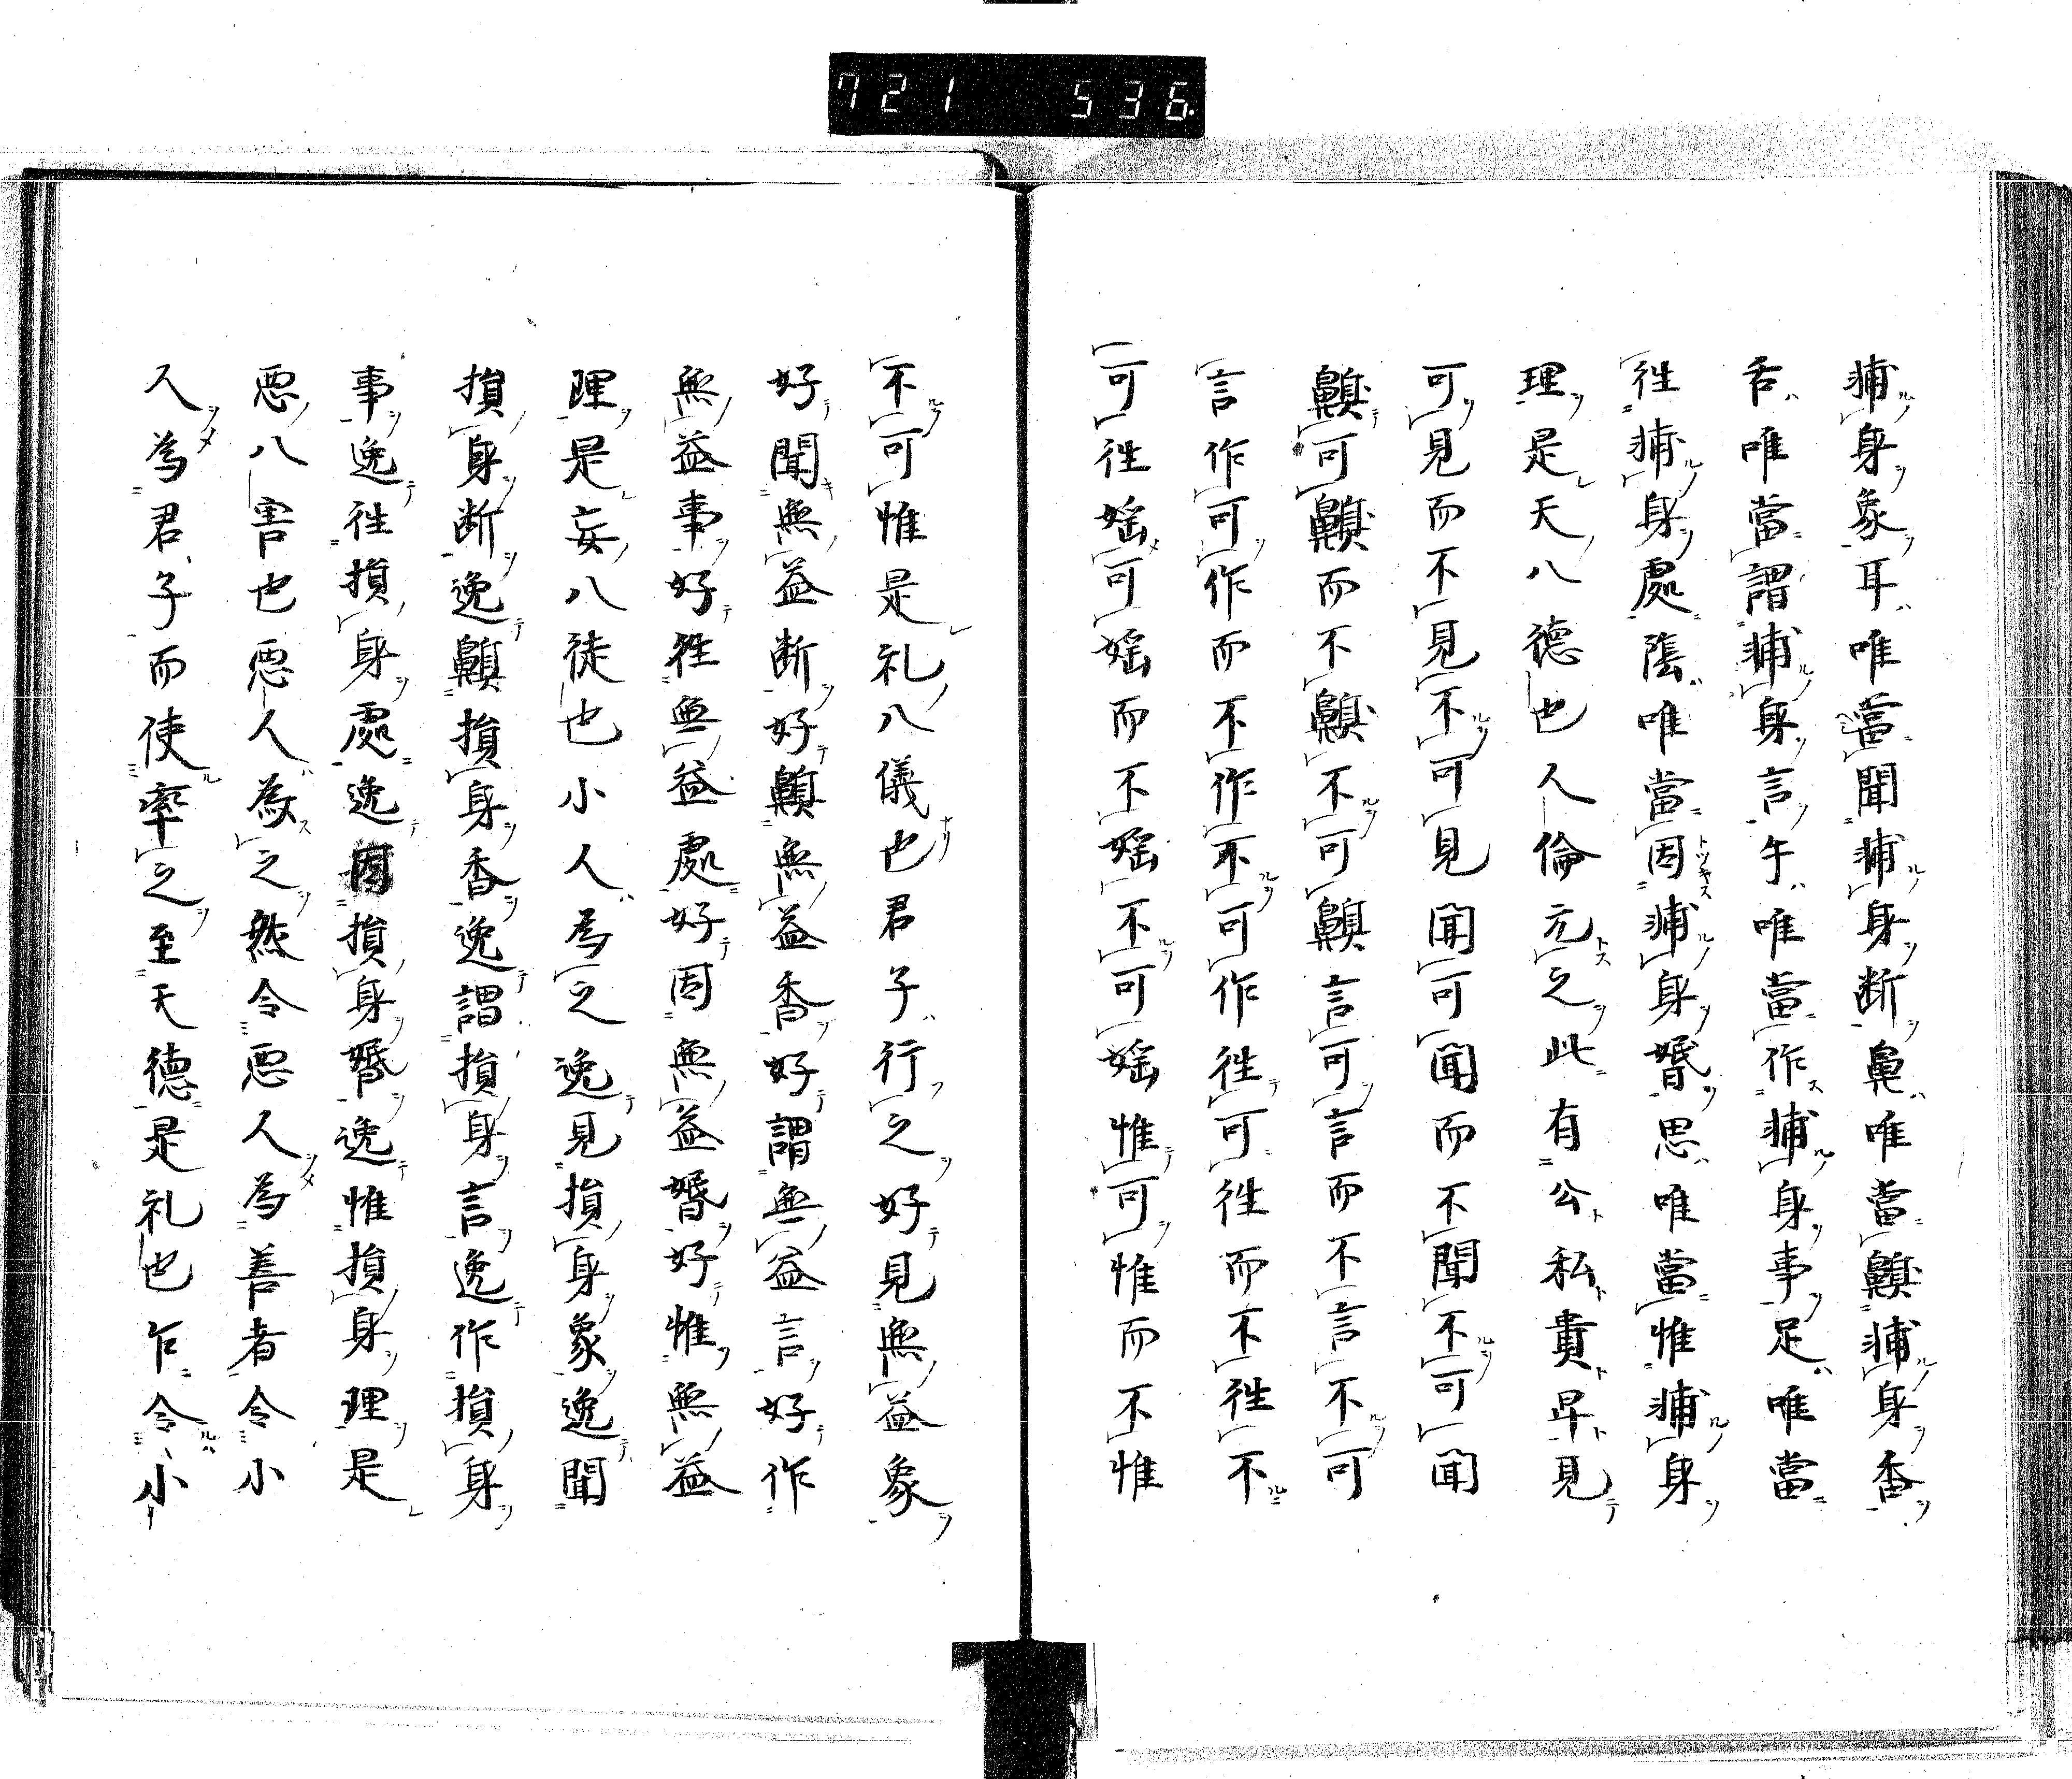 721 536
補身象耳唯當聞補身断鼻唯當齅補身香
舌唯當謂補身言手唯當作補身事足唯當
往補身處陰唯當因補身婚思唯當惟補身
理是天八德也人倫元之此有公私貴卑見
可見而不見不可見聞可聞而不聞不可聞
齅可齅而不齅不可齅言可言而不言不可
言作可作而不作不可作往可往而不往不
可往婬可婬而不婬不可婬惟可惟而不惟
不可惟是礼八儀也君子行之好見無益象
好聞無益断好齅無益香好謂無益言好作
無益事好往無益處好因無益婚好惟無益
理是妄八徒也小人為之逸見損身象逸聞
損身断逸齅損身香逸謂損身言逸作損身
事逸往損身處逸因損身婚逸惟損身理是
悪八害也悪人為之然令悪人為善者令小
人為君子而使率之至天德是礼也乍令小